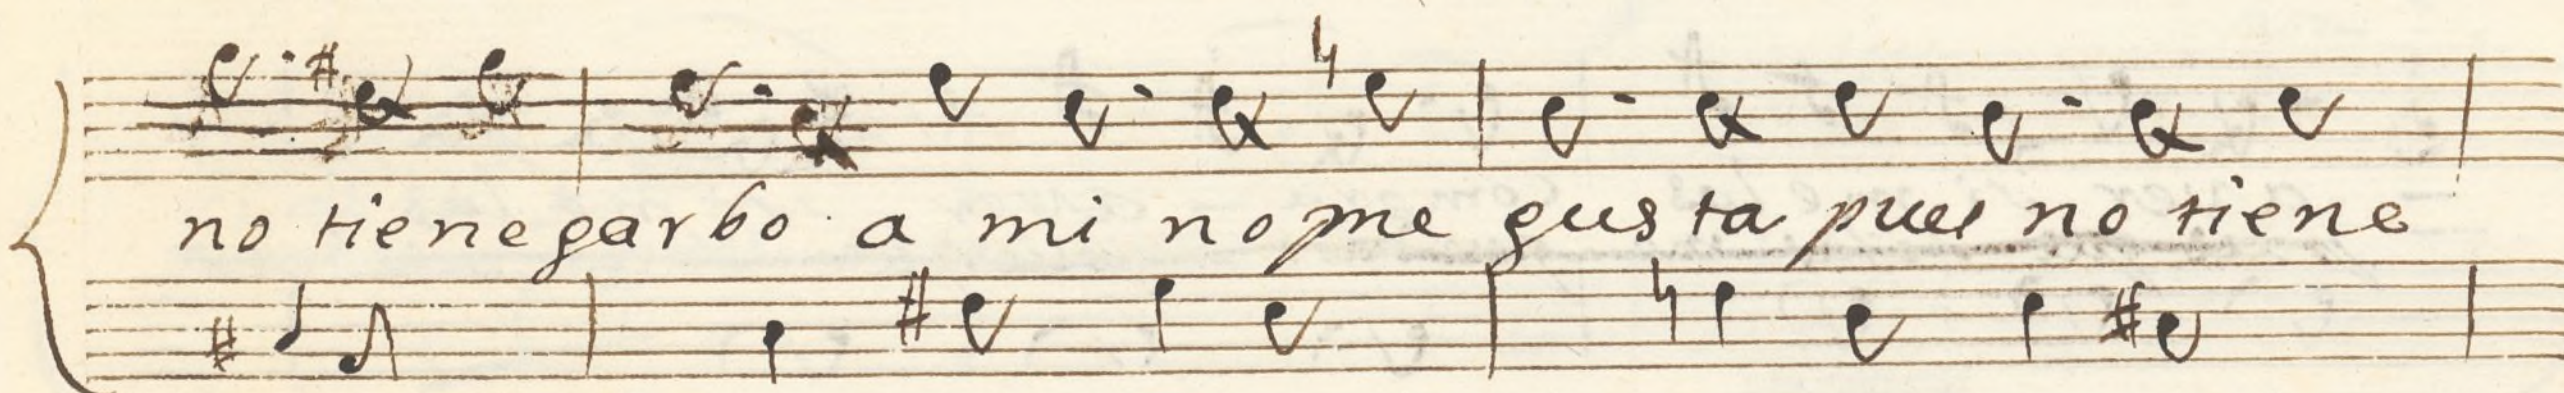 no tiene garbo a mi no me gusta pues no tiene